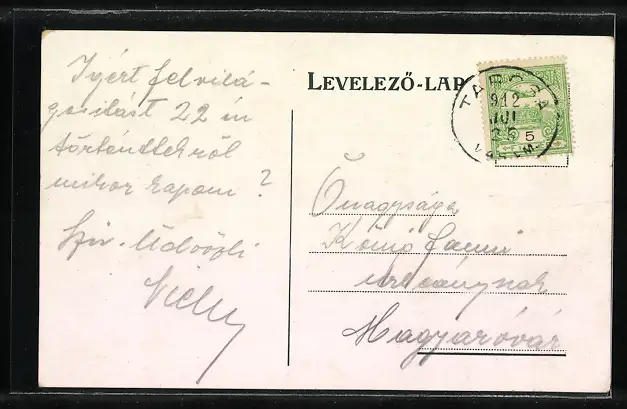 Igért felvilá-
gositást 22 én
történtekről
mikor kapom?
Sziv. Üdvözli
LEVELEZŐ-LAP
TAPOLCA
912
JUL
25
5
Őnagysága
König Fanni
urleánynak
Magyaróvár